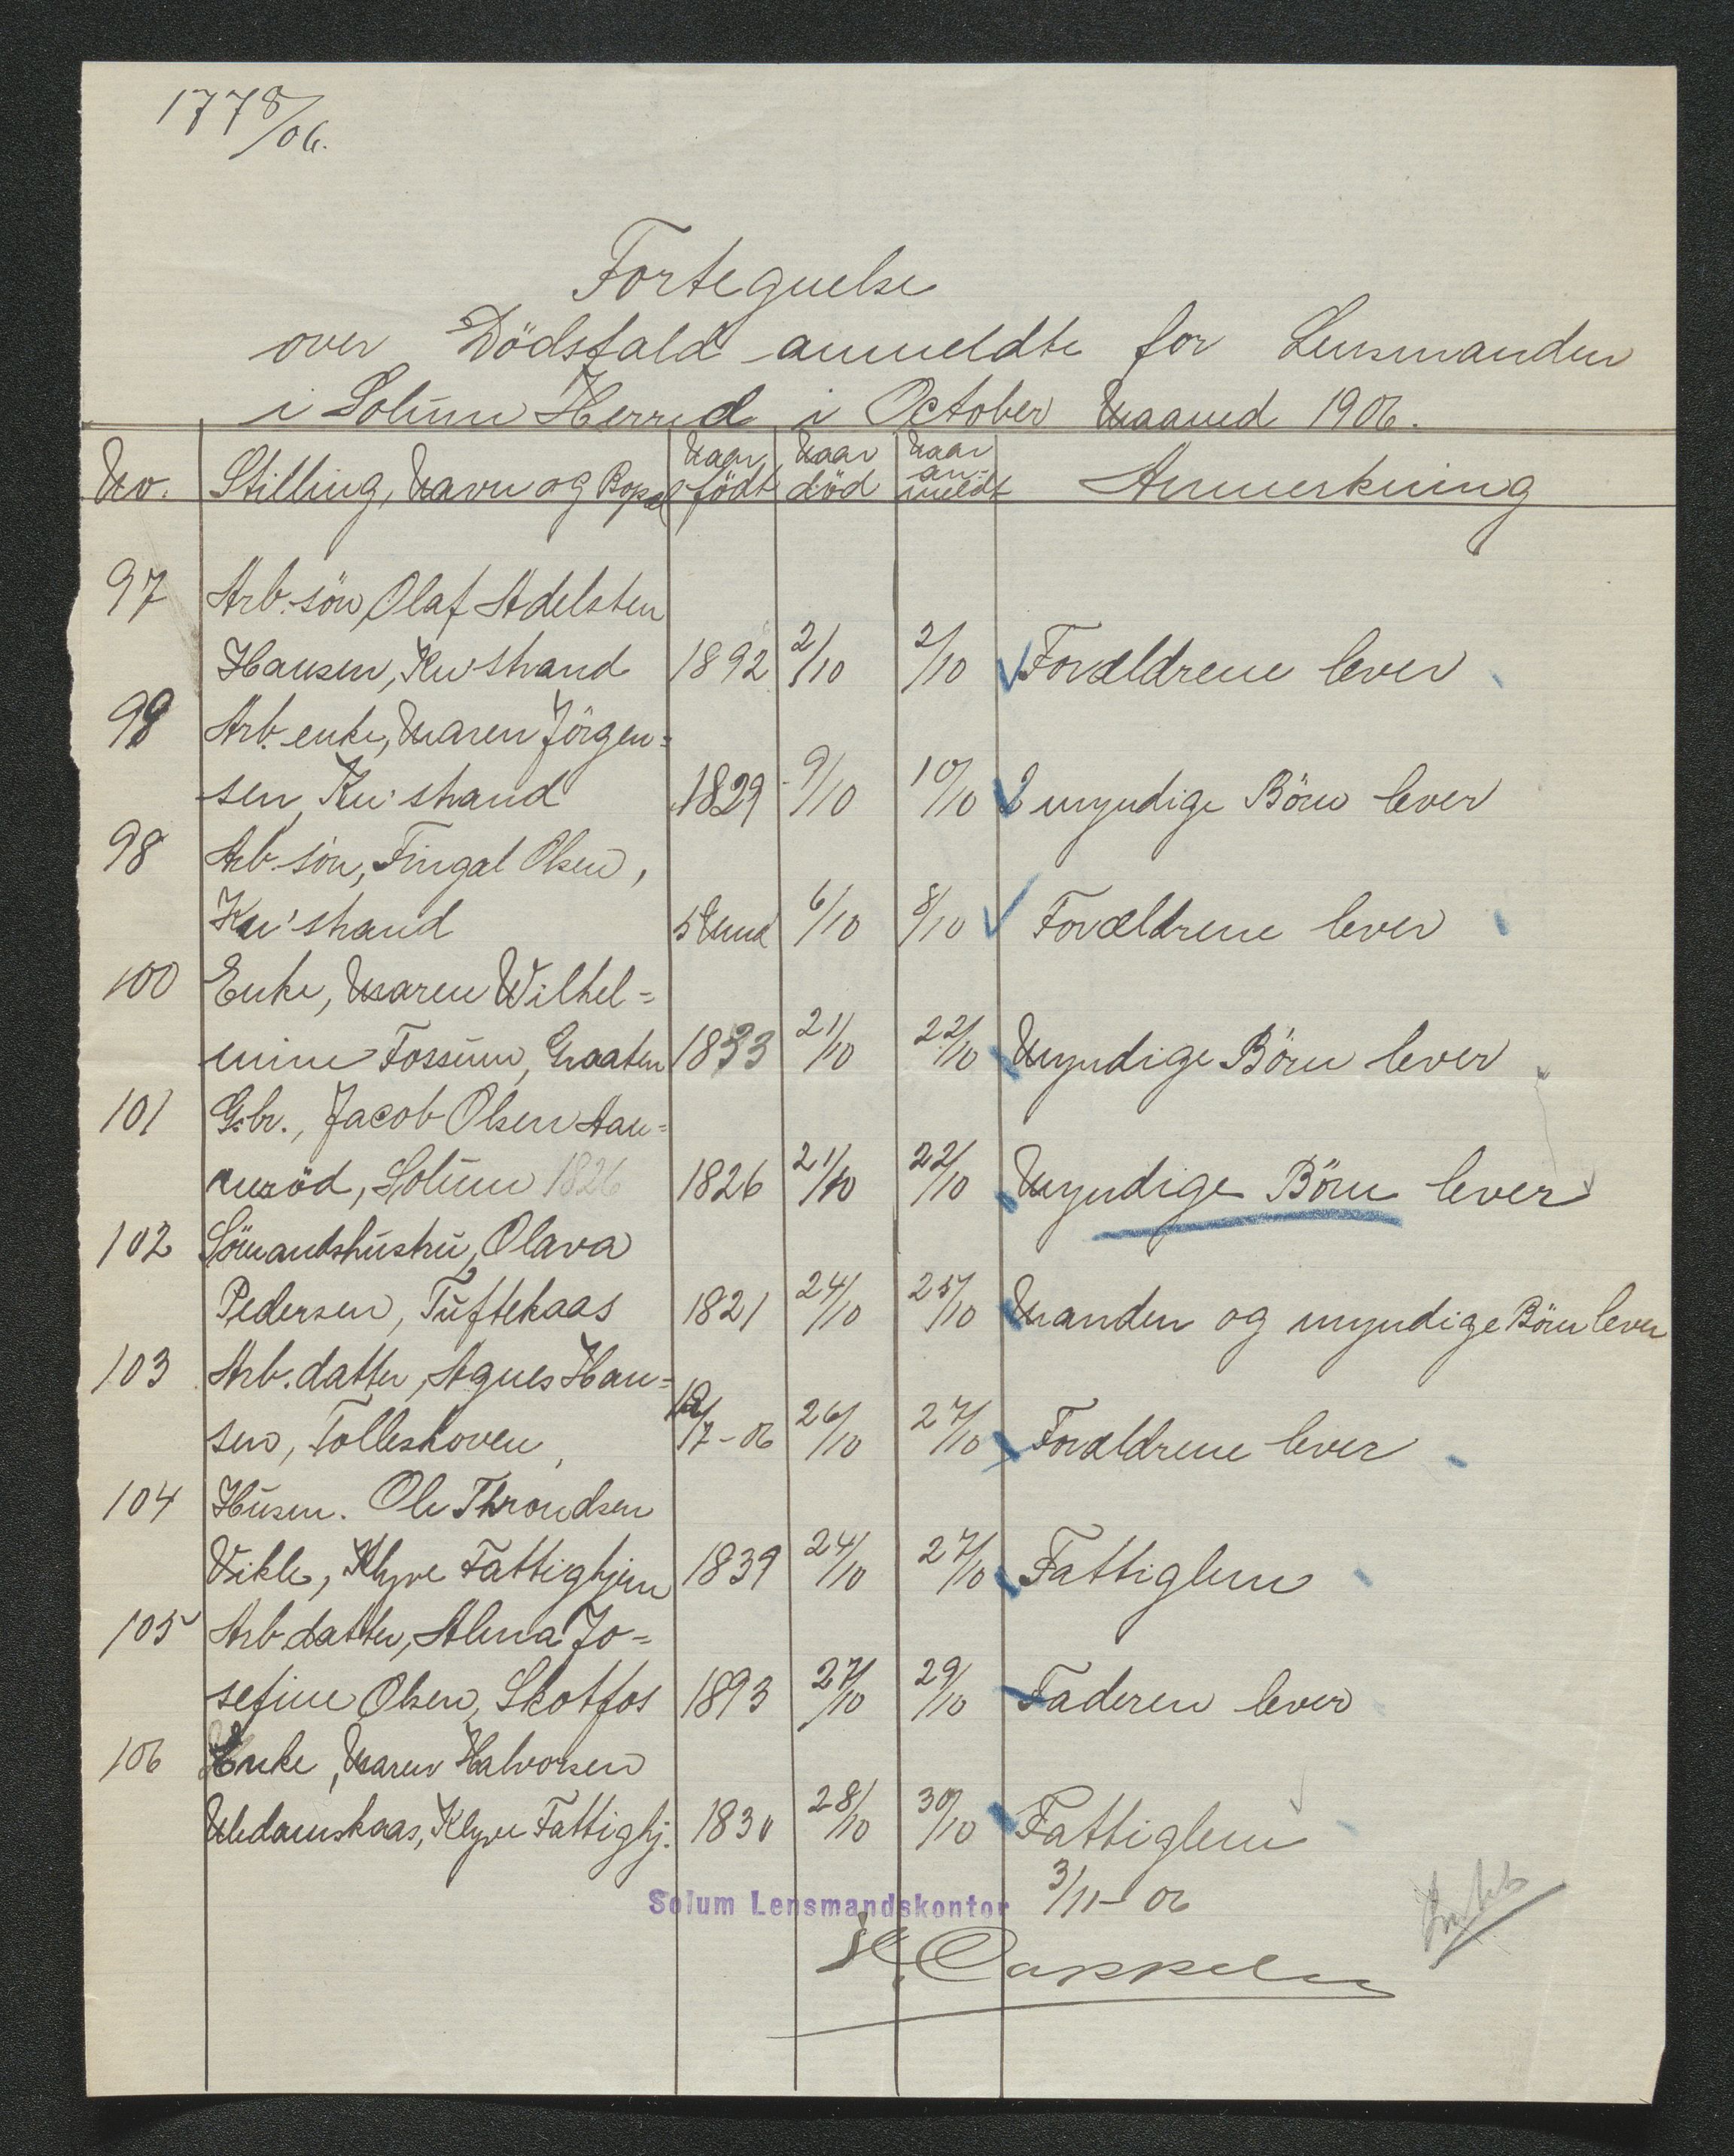 1778/06.
Fortegnelse
over Dödsfald anmeldte for Lensmanden
i Solum Herred i October Maaned 1906.
No. Stilling, Navn og Bopæl Naar födt Naar död Naar an-meldt Anmerkning
97 Arb. sön, Olaf Adelsten
Hansen, Kn'strand 1892 2/10 2/10 Forældrene lever
99 Arb. enke, Maren Jörgen=
sen, Kn'strand 1829 9/10 10/10 2 myndige Börn lever
98 Arb. sön, Fingal Olsen,
Kn'strand 5 Mnd 6/10 8/10 Forældrene lever
100 Enke, Maren Wilhel=
mine Fossum, Graaten 1833 21/10 22/10 Myndige Börn lever
101 Gbr., Jacob Olsen Aan=
nerød, Solum 1826 1826 21/10 22/10 Myndige Börn lever
102 Sömandshustru, Olava
Pedersen, Tuftekaas 1821 24/10 25/10 Manden og myndige Börn lever
103 Arb. datter, Agnes Han=
sen, Tolleskoven, 12/7-06 26/10 27/10 Forældrene lever
104 Husm. Ole Throndsen
Vikle, Klyve Fattighjem 1839 24/10 27/10 Fattiglem
105 Arb. datter, Alma Jo=
sefine Olsen, Skotfos 1893 27/10 29/10 Faderen lever
106 Enke, Maren Halvorsen
Medamskaas, Klyve Fattighj. 1830 28/10 30/10 Fattiglem
Solum Lensmandskontor 3/11-06
Cappelen